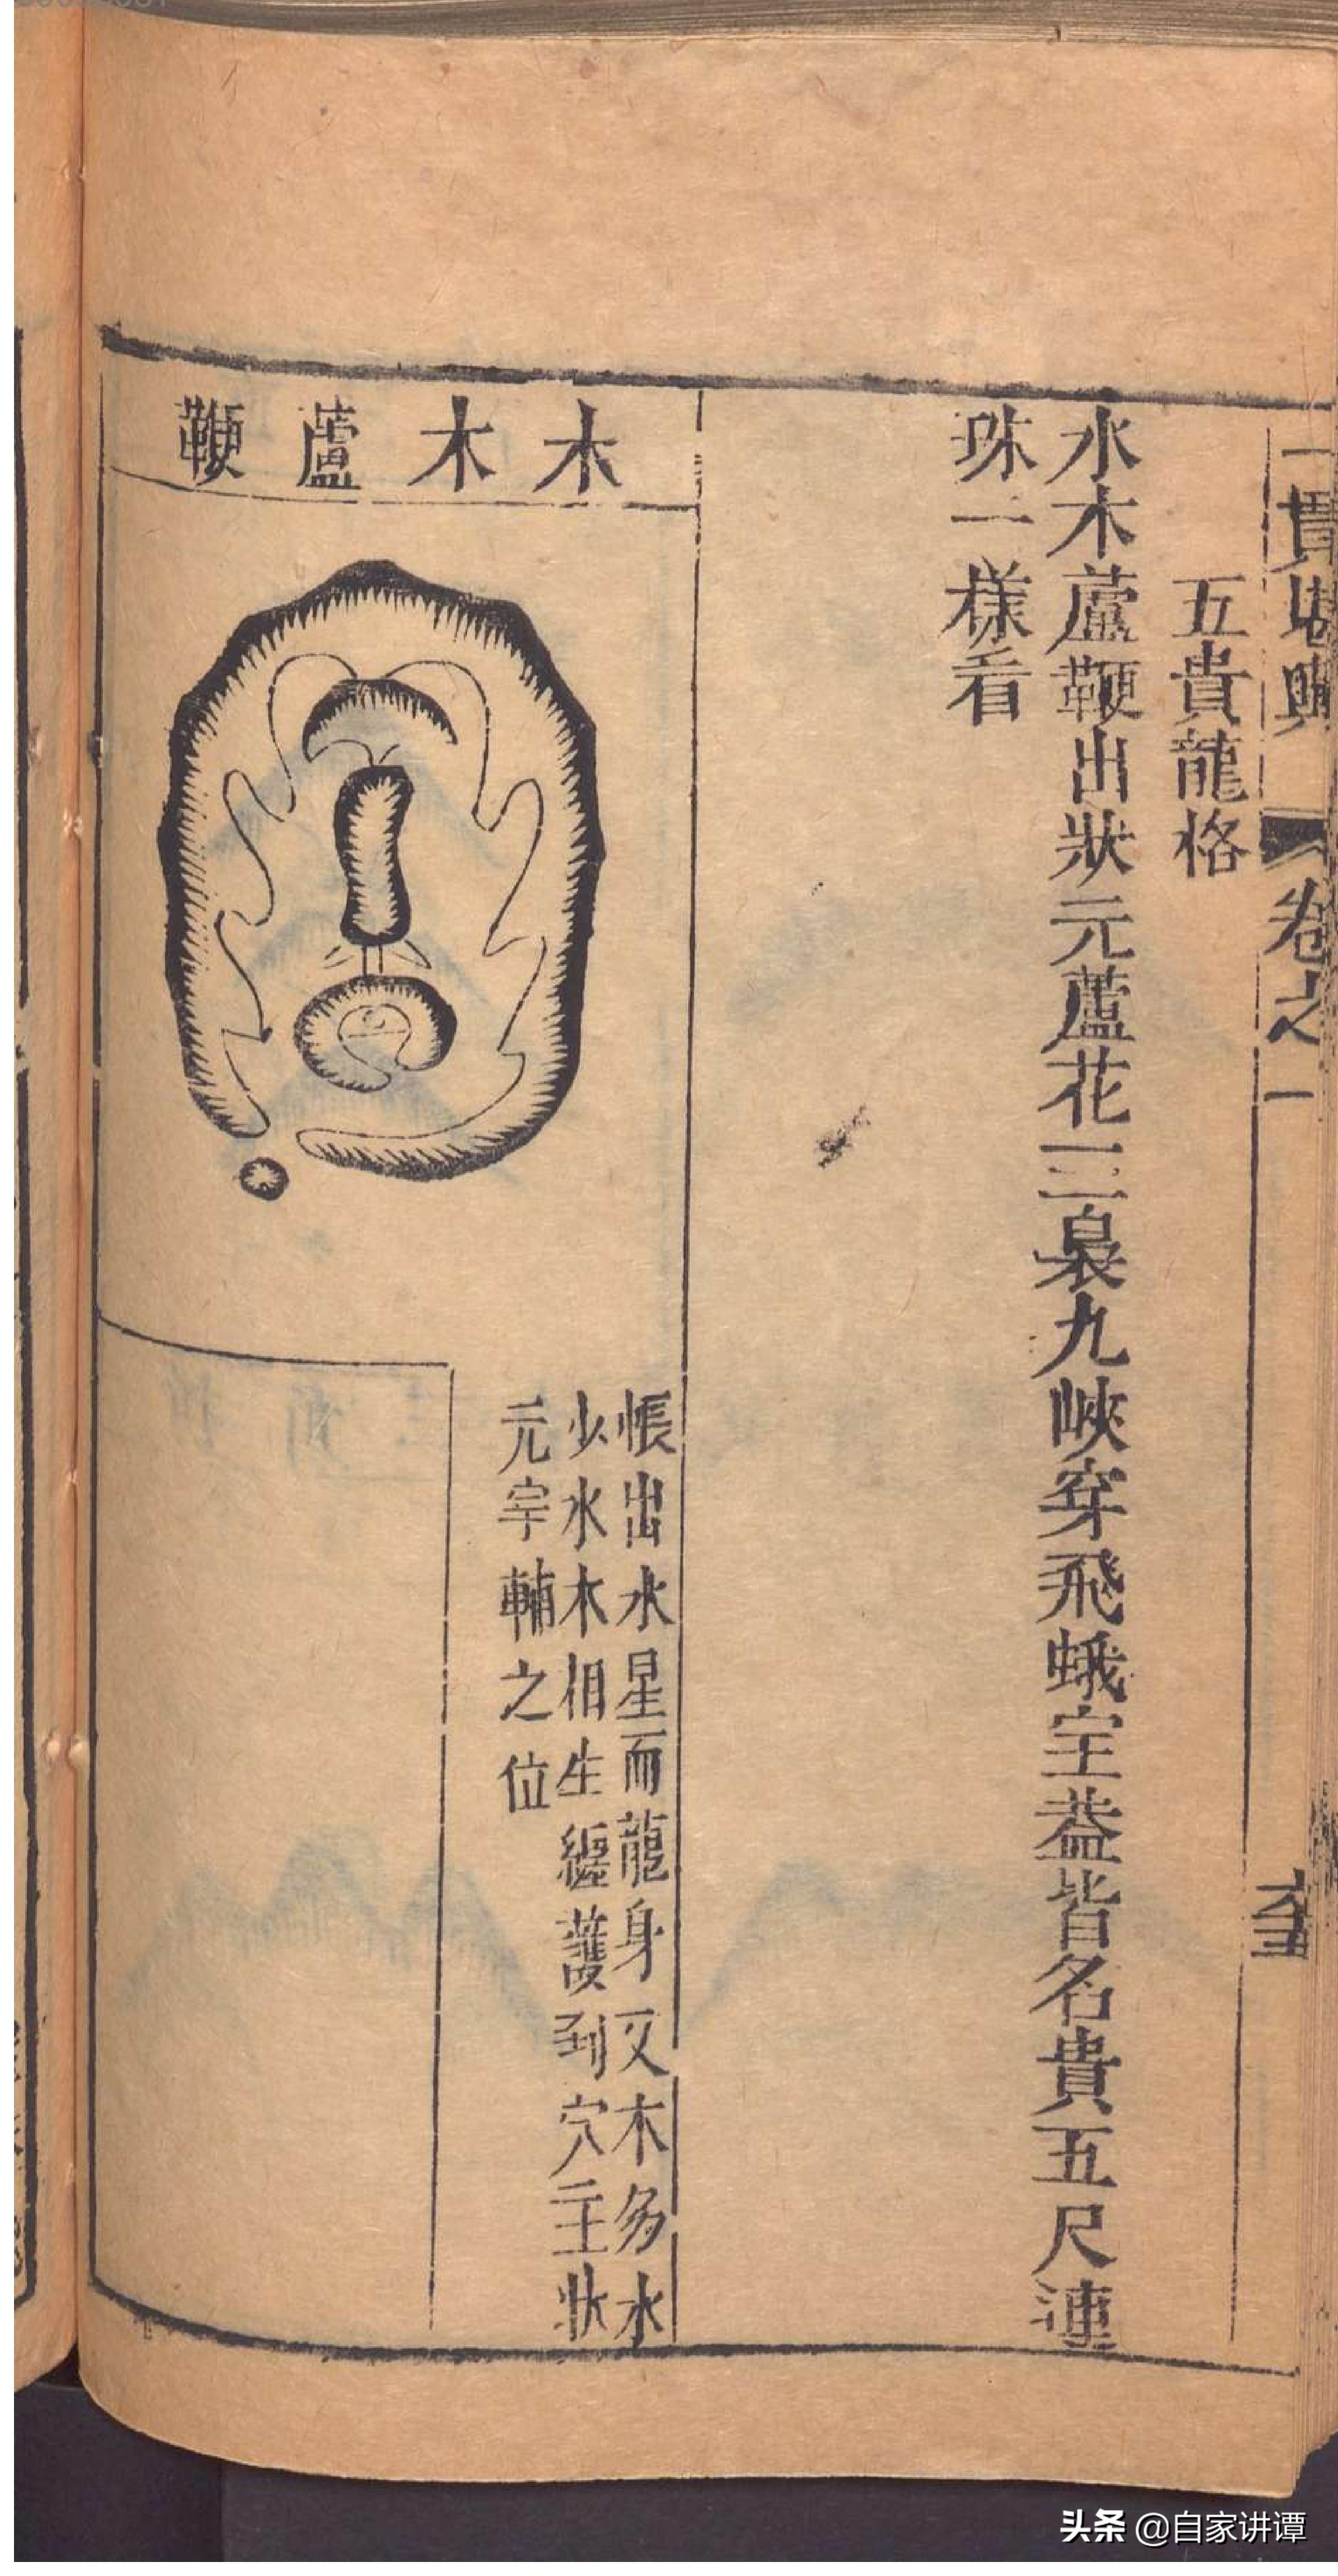 一貫堪輿 卷之一
五貴龍格
水木蘆鞭出狀元蘆花三裊九峽穿飛蛾宝葢皆名貴五尺連
珠一様看
木木蘆鞭
帳出水星而龍身又木多水
少水木相生纒護到穴主狀
元宰輔之位
头条 @自家讲谭